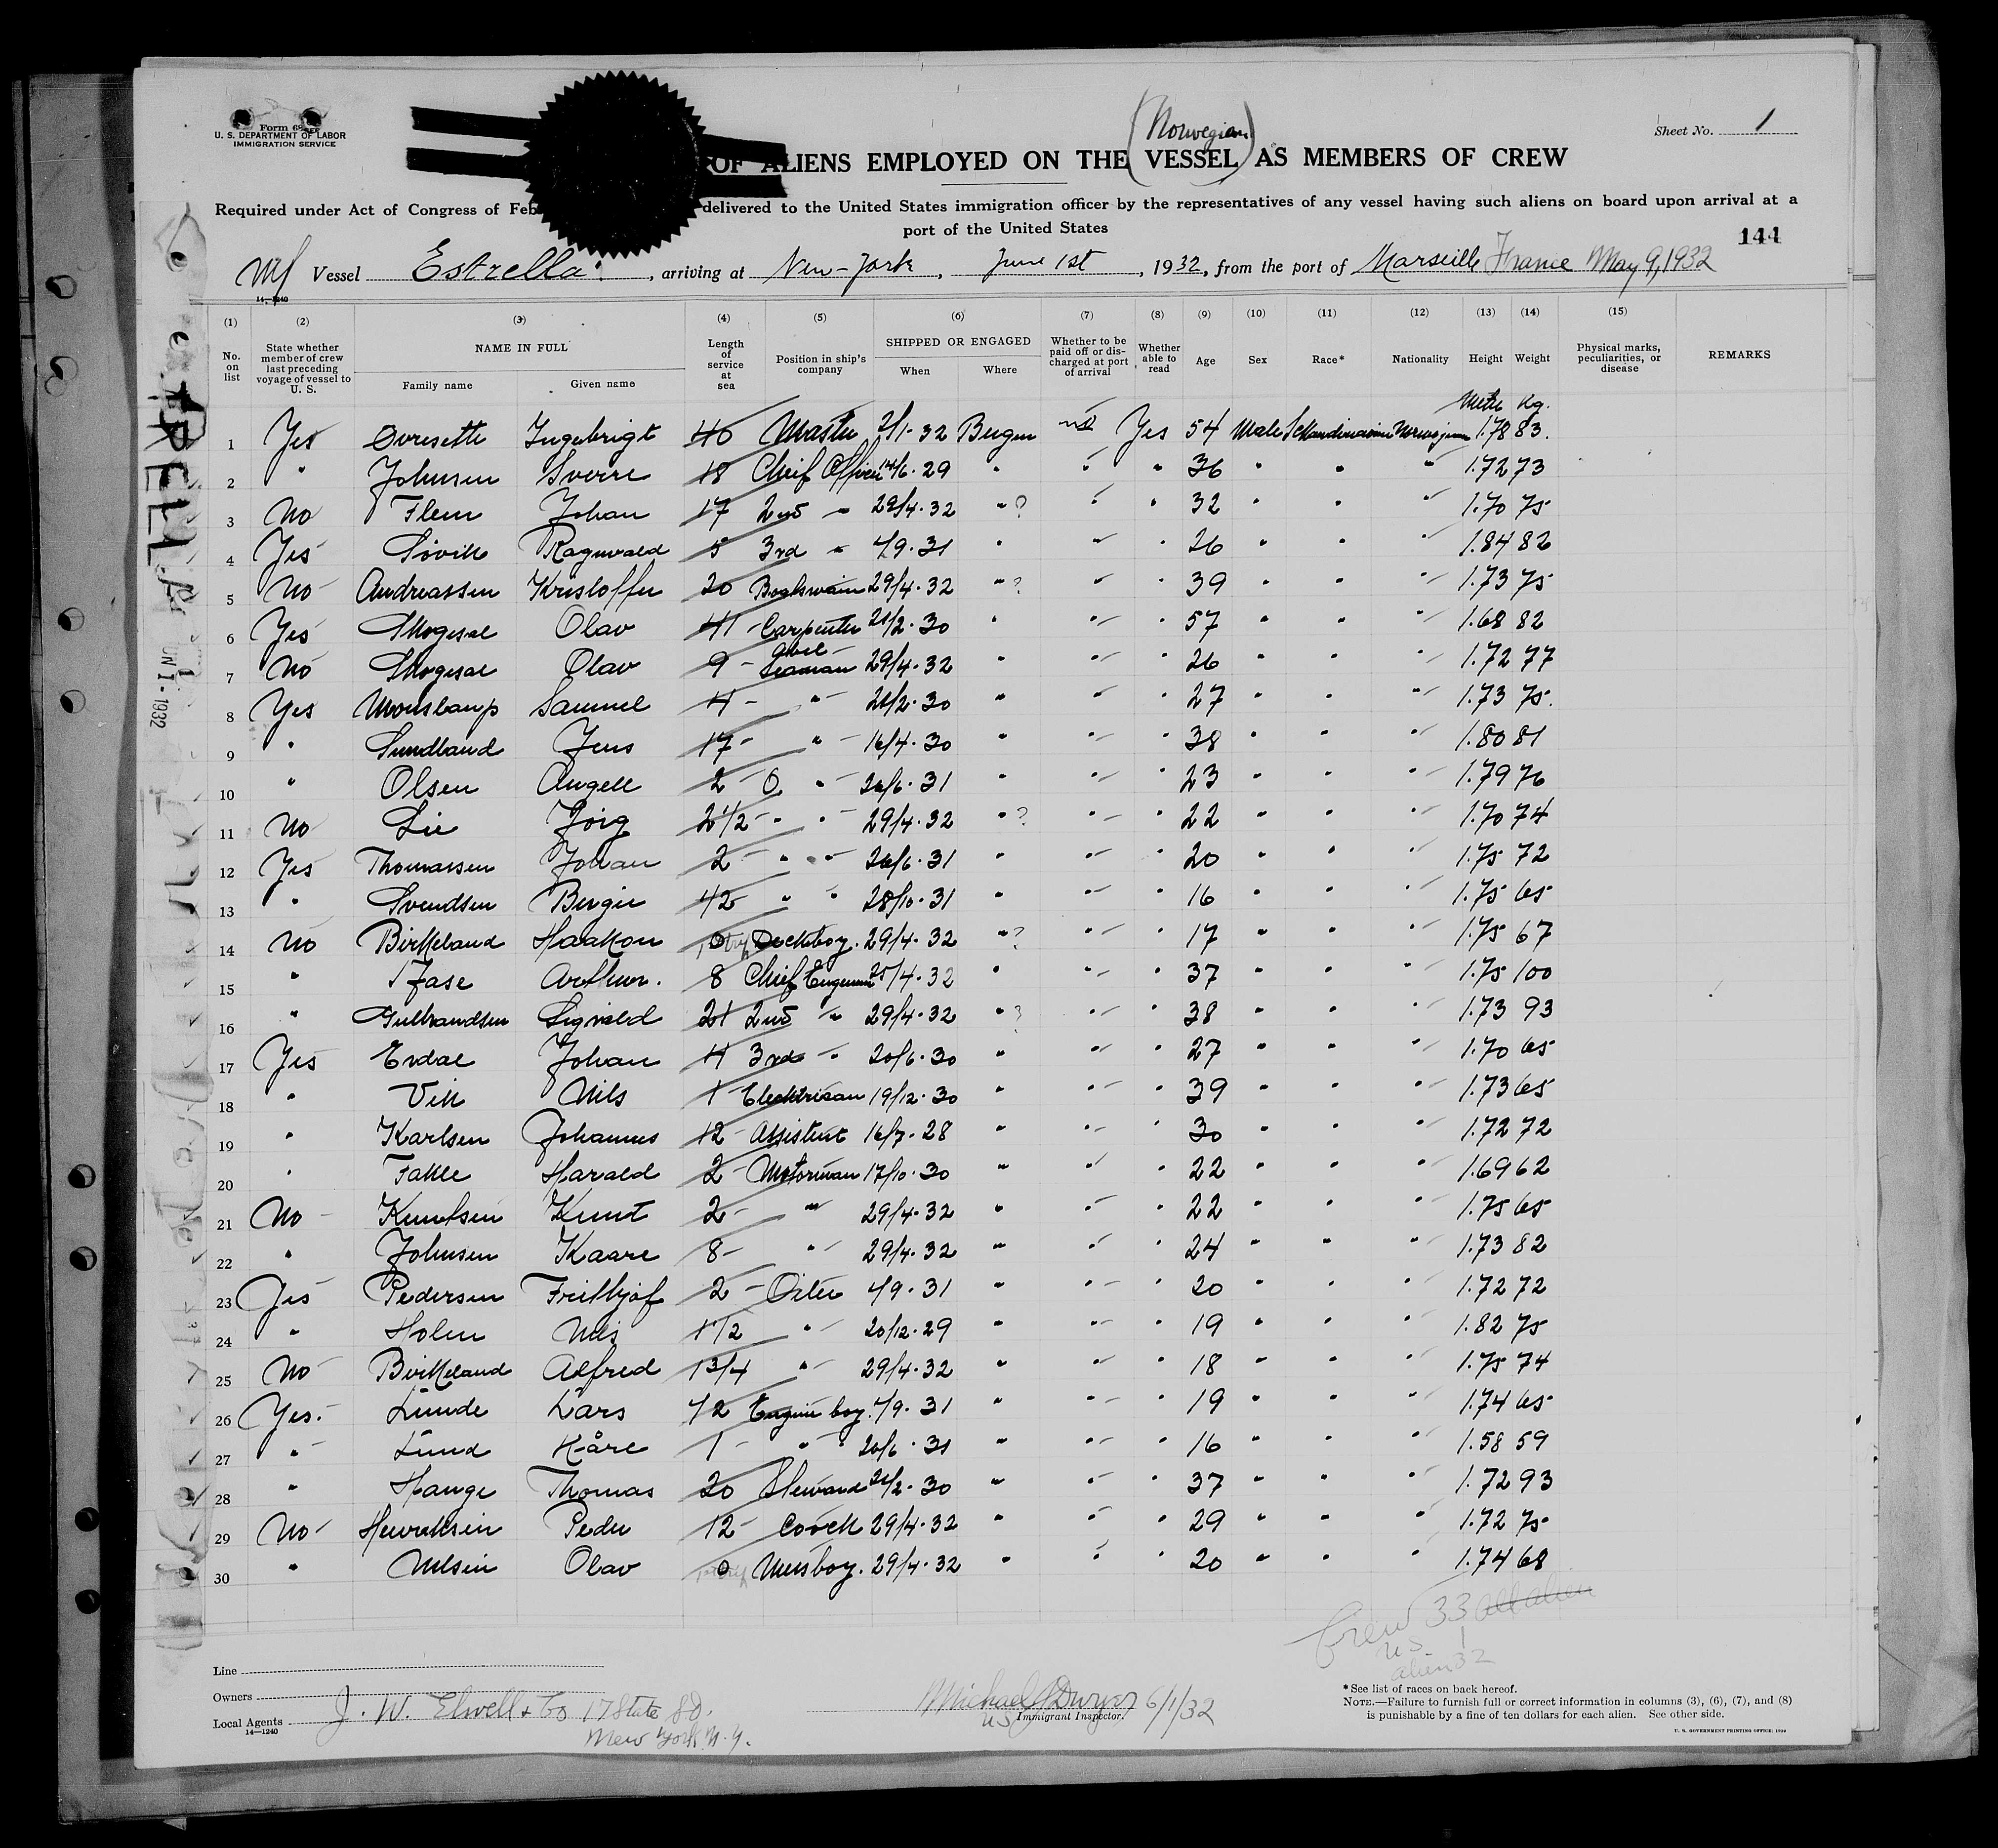 Form 68
U. S. DEPARTMENT OF LABOR
IMMIGRATION SERVICE
(Norwegian)
Sheet No. 1
OF ALIENS EMPLOYED ON THE (VESSEL) AS MEMBERS OF CREW
Required under Act of Congress of Feb delivered to the United States immigration officer by the representatives of any vessel having such aliens on board upon arrival at a
port of the United States
144
M/S Vessel Estrella, arriving at New-York, June 1st, 1932, from the port of Marseille France May 9, 1932
14-1240
(1) (2) (3) (4) (5) (6) (7) (8) (9) (10) (11) (12) (13) (14) (15)
No. on list State whether member of crew last preceding voyage of vessel to U. S. NAME IN FULL Family name Given name Length of service at sea Position in ship's company SHIPPED OR ENGAGED When Where Whether to be paid off or discharged at port of arrival Whether able to read Age Sex Race* Nationality Height Weight Physical marks, peculiarities, or disease REMARKS
Metre Kg.
1 Yes Ingebrigt 40 Master 2/1-32 Bergen no Yes 54 Male Skandinavian Norwegian 1.78 83.
2 " Johnsen Sverre 18 Chief Officer 14/6-29 " " " 36 " " " 1.72 73
3 No Flem Johan 17 2nd " 29/4-32 "? " " 32 " " " 1.70 75
4 Yes Søvik Ragnvald 5 3rd " 4/9-31 " " " 26 " " " 1.84 82
5 No Andreassen Kristoffer 20 Boatswain 29/4-32 "? " " 39 " " " 1.73 75
6 Yes Skogsal Olav 41 - Carpenter 21/2-30 " " " 57 " " " 1.68 82
7 No Skogsal Olav 9 - able Seaman 29/4-32 " " " 26 " " " 1.72 77
8 Yes Samuel 4 - " 21/2-30 " " " 27 " " " 1.73 75.
9 " Sundland Jens 17 - " 16/4-30 " " " 38 " " " 1.80 81
10 " Olsen Angell 2 - O. " 26/6-31 " " " 23 " " " 1.79 76
11 No Lie 2 1/2 - " " 29/4-32 "? " " 22 " " " 1.70 74
12 Yes Thomassen Johan 2 - " " 26/6-31 " " " 20 " " " 1.75 72
13 " Svendsen Birger 1/2 " " 28/10-31 " " " 16 " " " 1.75 65
14 No Birkeland Haakon 0 Decksboy. 29/4-32 "? " " 17 " " " 1.75 67
15 " Arthur. 8 Chief Engineer 25/4-32 " " " 37 " " " 1.75 100
16 " Gulbrandsen Sigvald 21 2nd " 29/4-32 "? " " 38 " " " 1.73 93
17 Yes Erdal Johan 4 3rd " 20/6-30 " " " 27 " " " 1.70 65
18 " Vik Nils 1 Elecktrisan 19/12-30 " " " 39 " " " 1.73 65
19 " Karlsen Johannes 12 - Assistent 16/7-28 " " " 30 " " " 1.72 72
20 " Takle Harald 2 - Motorman 17/10-30 " " " 22 " " " 1.69 62
21 No Knutsen Knut 2 - " 29/4-32 " " " 22 " " " 1.75 65
22 " Johnsen Kaare 8 - " 29/4-32 " " " 24 " " " 1.73 82
23 Yes Pedersen Frithjof 2 - Oiler 4/9-31 " " " 20 " " " 1.72 72
24 " Holm Nils 1 1/2 " 20/12-29 " " " 19 " " " 1.82 75
25 No Birkeland Alfred 1 3/4 " 29/4-32 " " " 18 " " " 1.75 74
26 Yes. Lunde Lars 1/2 Engine boy. 4/9-31 " " " 19 " " " 1.74 65
27 " Lund Kåre 1 - " " 26/6-31 " " " 16 " " " 1.58 59
28 " Hauge Thomas 20 Steward 21/2-30 " " " 37 " " " 1.72 93
29 No Henriksen Peder 12 - Coock 29/4-32 " " " 29 " " " 1.72 75
30 " Nilsen Olav 0 Messboy. 29/4-32 " " " 20 " " " 1.74 68
Crew 33 all alien
US 1
alien 32
Line
Owners
Local Agents J. W. Elwell & Co 17 State St.
New York N.Y.
14-1240
Michael J Dwyer 6/1/32
US Immigrant Inspector.
*See list of races on back hereof.
NOTE.—Failure to furnish full or correct information in columns (3), (6), (7), and (8)
is punishable by a fine of ten dollars for each alien. See other side.
U. S. GOVERNMENT PRINTING OFFICE: 1929
JUN 1-1932